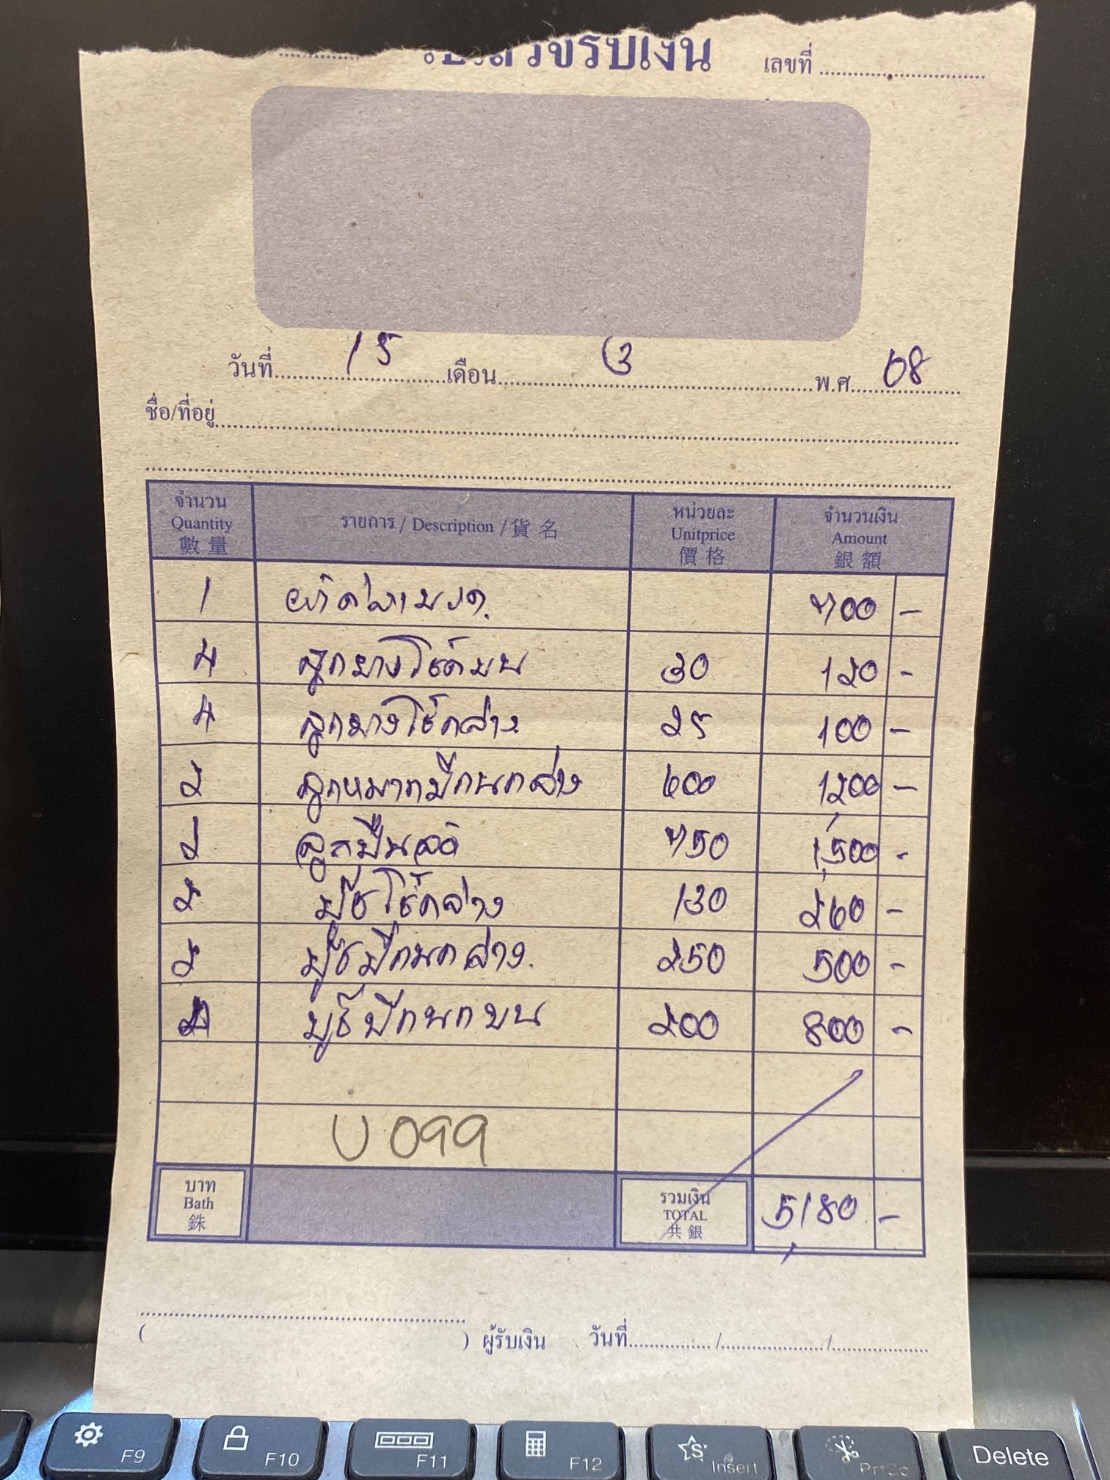 ใบเสร็จรับเงิน เลขที่
วันที่ 15 เดือน 3 พ.ศ. 68
ชื่อ/ที่อยู่
จำนวน Quantity 數量 รายการ / Description / 貨名 หน่วยละ Unitprice 價格 จำนวนเงิน Amount 銀額
1 700 -
4 ลูกยางโช้คบน 30 120 -
4 ลูกยางโช้คล่าง 25 100 -
2 ลูกหมากปีกนกล่าง 600 1200 -
2 ลูกปืนล้อ 750 1,500 -
2 บู๊ชโช้คล่าง 130 260 -
2 บู๊ชปีกนกล่าง 250 500 -
4 บู๊ชปีกนกบน 200 800 -
U 099
บาท Bath 銖 รวมเงิน TOTAL 共銀 5,180 -
( ) ผู้รับเงิน วันที่ / /
F9 F10 F11 F12 Insert PrtSc Delete